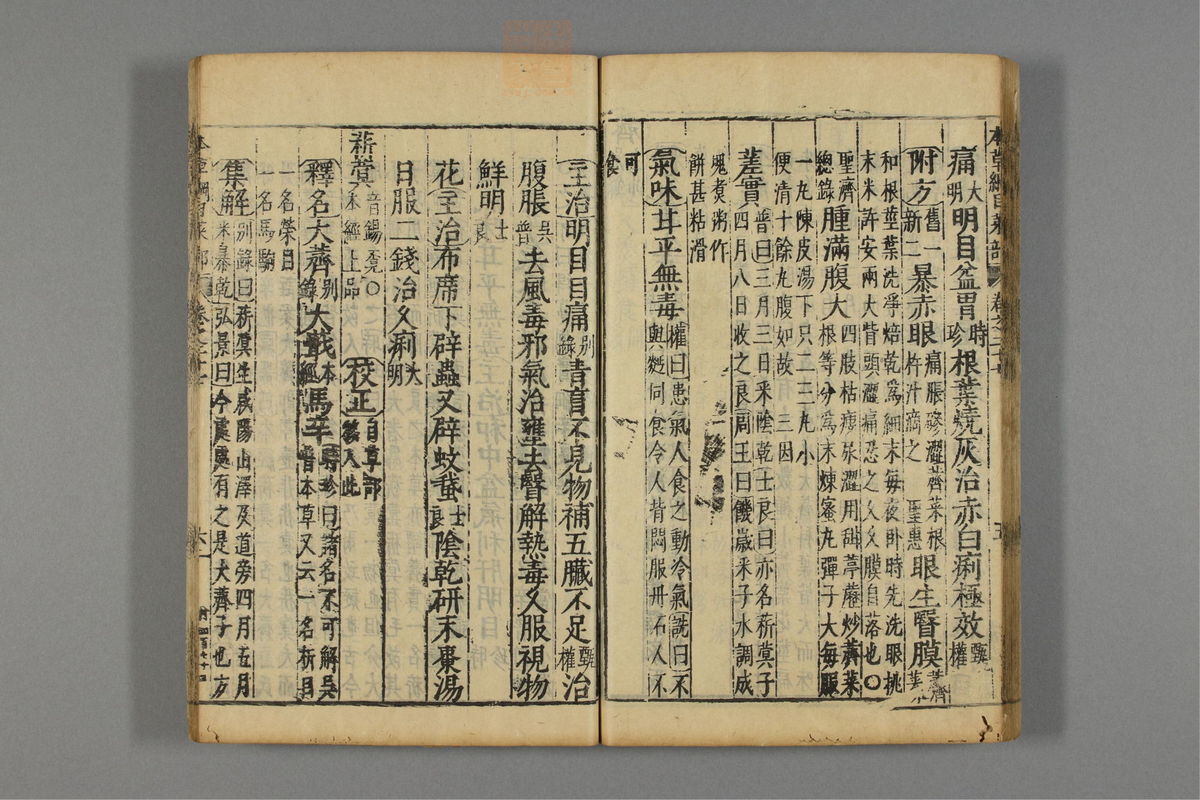 痛大明明目益胃時珍根葉燒灰治赤白痢極效甄權
附方舊一新二暴赤眼痛脹磣澀薺菜根杵汁滴之聖惠眼生瞖膜薺菜
和根莖葉洗淨焙乾為細末每夜臥時先洗眼挑
末米許安兩大眥頭澀痛忍之久久膜自落也〇
聖濟總錄腫滿腹大四肢枯瘦尿澀用甜葶藶炒薺菜
根等分為末煉蜜丸彈子大每服
一丸陳皮湯下只二三丸小
便清十餘丸腹如故三因
薺實普曰三月三日采陰乾士良曰亦名菥蓂子
四月八日收之良周王曰饑歲采子水調成
塊煮粥作
餅甚粘滑
氣味甘平無毒權曰患氣人食之動冷氣詵曰不
與麪同食令人背悶服丹石人不
可
食
主治明目目痛別錄青盲不見物補五臟不足甄權治
腹脹吳普去風毒邪氣治壅去瞖解熱毒久服視物
鮮明士良
花主治布席下辟蟲又辟蚊蛾士良陰乾研末棗湯
日服二錢治久痢大明
菥蓂音錫覓〇本經上品校正自草部移入此
釋名大薺別錄大蕺本經馬辛普時珍曰諸名不可解吳
普本草又云一名析目
一名榮目
一名馬駒
集解別錄曰菥蓂生咸陽山澤及道旁四月五月
采暴乾弘景曰今處處有之是大薺子也方